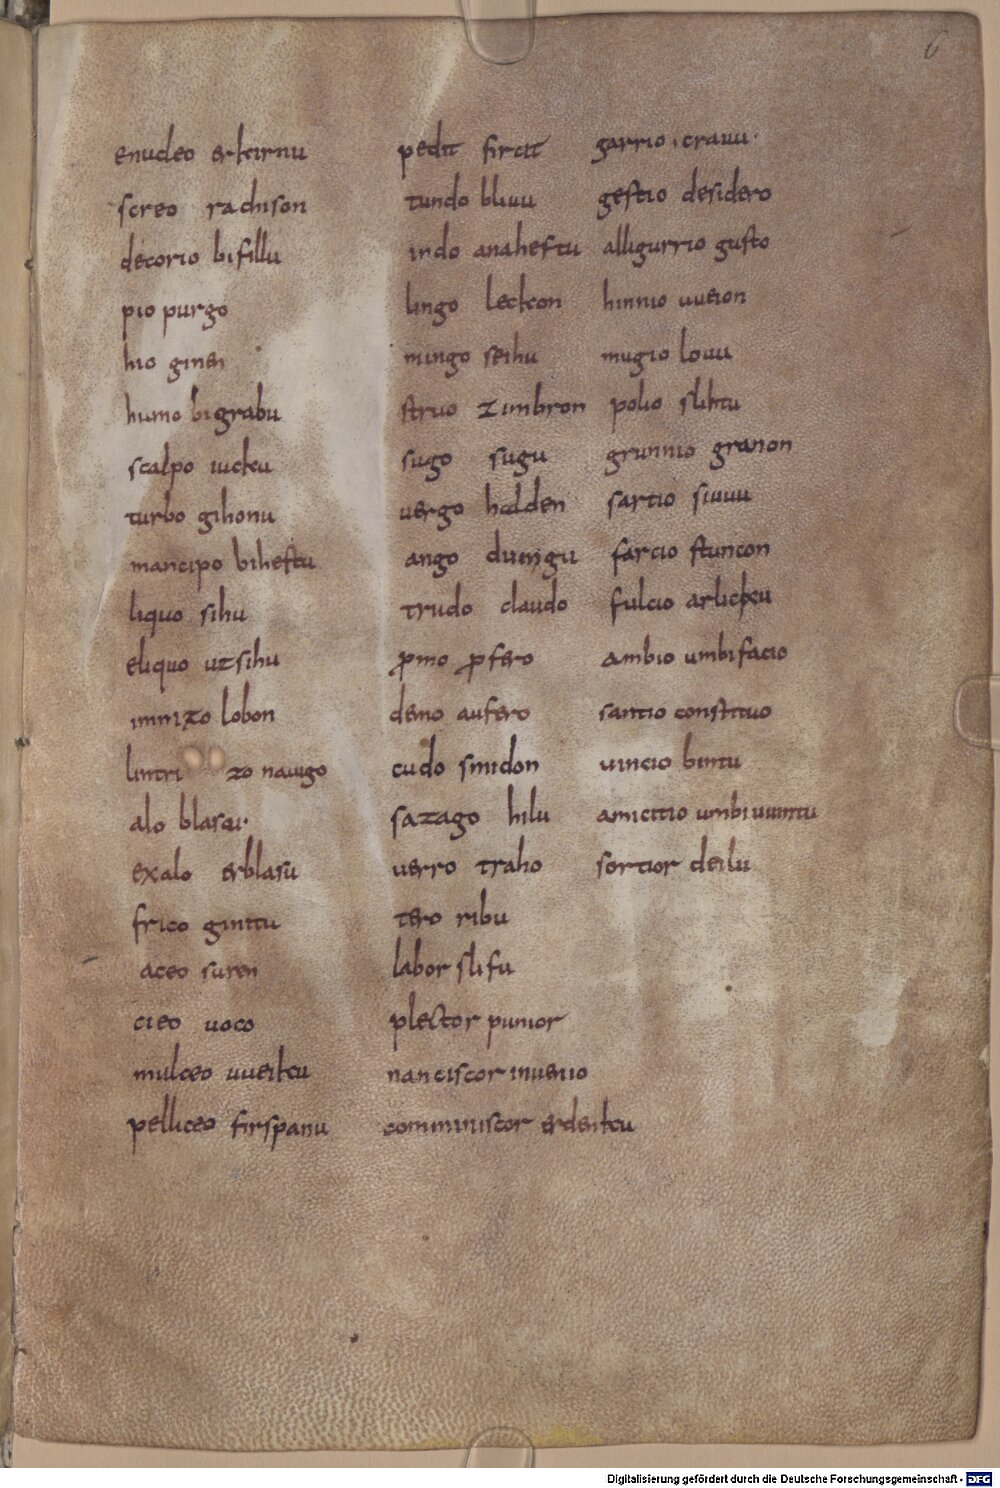 6
enucleo erkirnu
screo rachison
decorio bifillu
pio purgo
hio ginen
humo bigrabu
scalpo iucku
turbo gihonu
mancipo biheftu
liquo sihu
eliquo uzsihu
innizo lobon
lintri zo nauigo
alo blasu
exalo erblasu
frico gnittu
aceo suren
cieo uoco
mulceo uueiku
pelliceo firspanu
pedit fircit
tundo bliuu
indo anaheftu
lingo leckon
mingo seihu
struo zimbron
sugo sugu
uergo helden
ango duuingu
trudo claudo
ꝓmo ꝓfero
demo aufero
cudo smidon
sazago hilu
uerro traho
tero ribu
labor slifu
plector punior
nanciscor inuenio
comminiscor erdenku
garrio . crauu .
gestio desidero
alligurrio gusto
hinnio uueion
mugio louu
polio slihtu
grunnio granon
sartio siuuu
farcio stuncon
fulcio arlicku
ambio umbifacio
santio constituo
uincio bintu
amictio umbiuuintu
sortior deilu
Digitalisierung gefördert durch die Deutsche Forschungsgemeinschaft - DFG